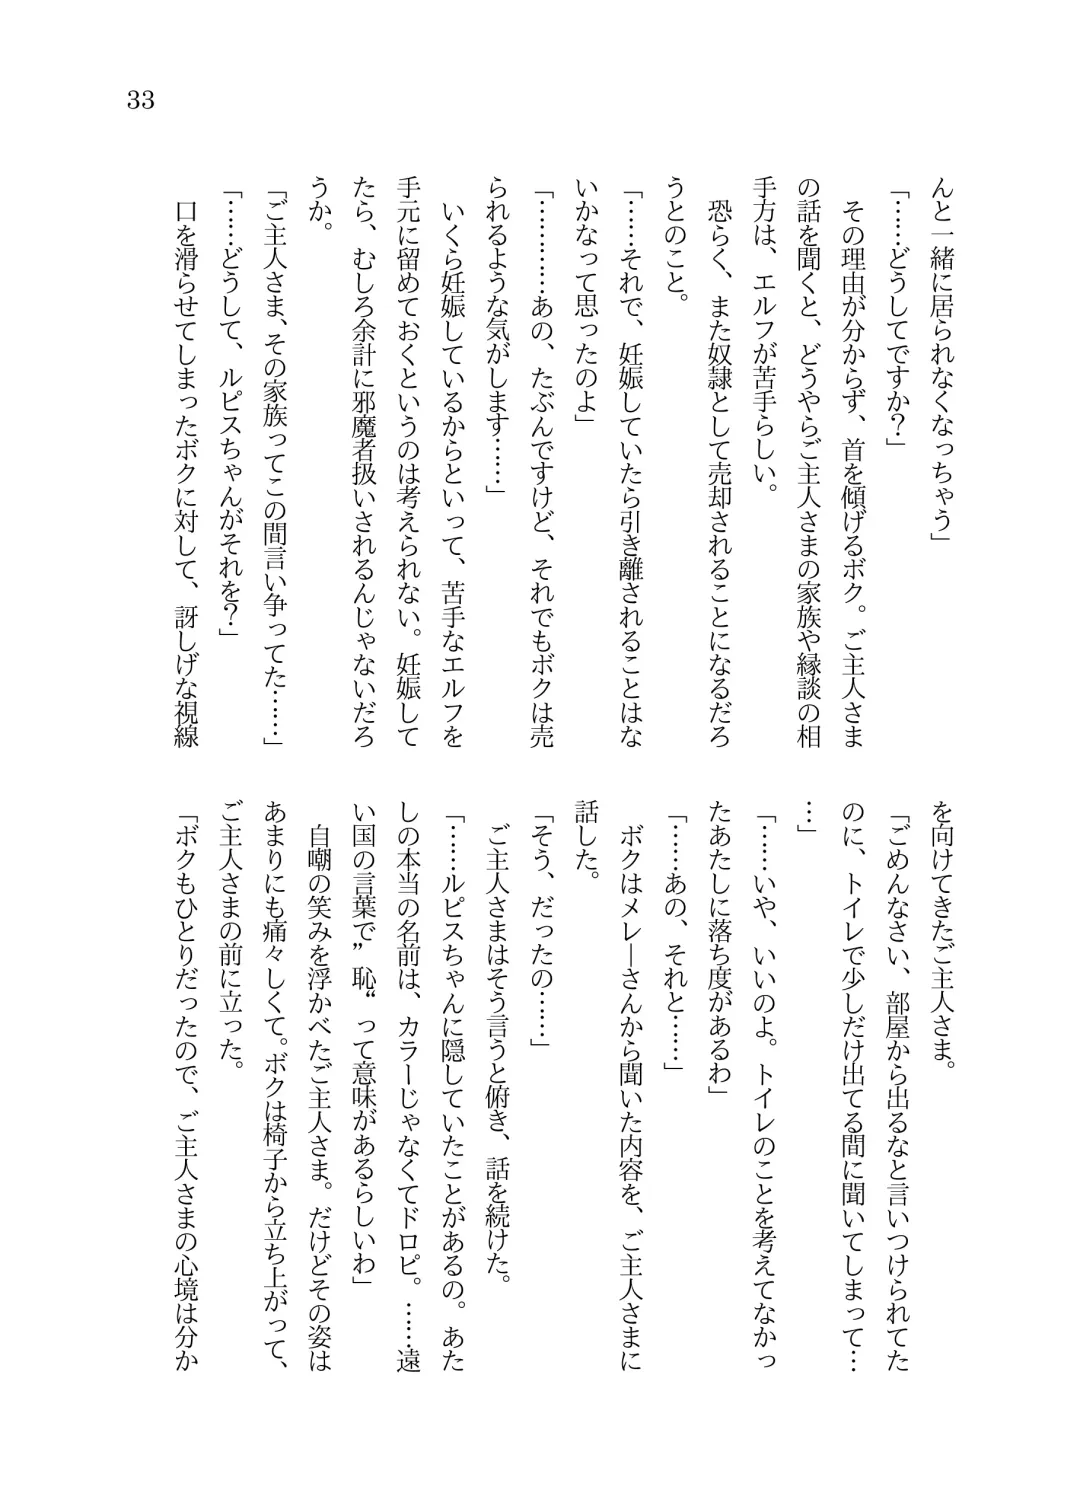 33
んと一緒に居られなくなっちゃう」
「……どうしてですか？」
　その理由が分からず、首を傾げるボク。ご主人さま
の話を聞くと、どうやらご主人さまの家族や縁談の相
手方は、エルフが苦手らしい。
　恐らく、また奴隷として売却されることになるだろ
うとのこと。
「……それで、妊娠していたら引き離されることはな
いかなって思ったのよ」
「…………あの、たぶんですけど、それでもボクは売
られるような気がします……」
　いくら妊娠しているからといって、苦手なエルフを
手元に留めておくというのは考えられない。妊娠して
たら、むしろ余計に邪魔者扱いされるんじゃないだろ
うか。
「ご主人さま、その家族ってこの間言い争ってた……」
「……どうして、ルピスちゃんがそれを？」
　口を滑らせてしまったボクに対して、訝しげな視線
を向けてきたご主人さま。
「ごめんなさい、部屋から出るなと言いつけられてた
のに、トイレで少しだけ出てる間に聞いてしまって…
…」
「……いや、いいのよ。トイレのことを考えてなかっ
たあたしに落ち度があるわ」
「……あの、それと……」
　ボクはメレーさんから聞いた内容を、ご主人さまに
話した。
「そう、だったの……」
　ご主人さまはそう言うと俯き、話を続けた。
「……ルピスちゃんに隠していたことがあるの。あた
しの本当の名前は、カラーじゃなくてドロピ。……遠
い国の言葉で”恥“って意味があるらしいわ」
　自嘲の笑みを浮かべたご主人さま。だけどその姿は
あまりにも痛々しくて。ボクは椅子から立ち上がって、
ご主人さまの前に立った。
「ボクもひとりだったので、ご主人さまの心境は分か